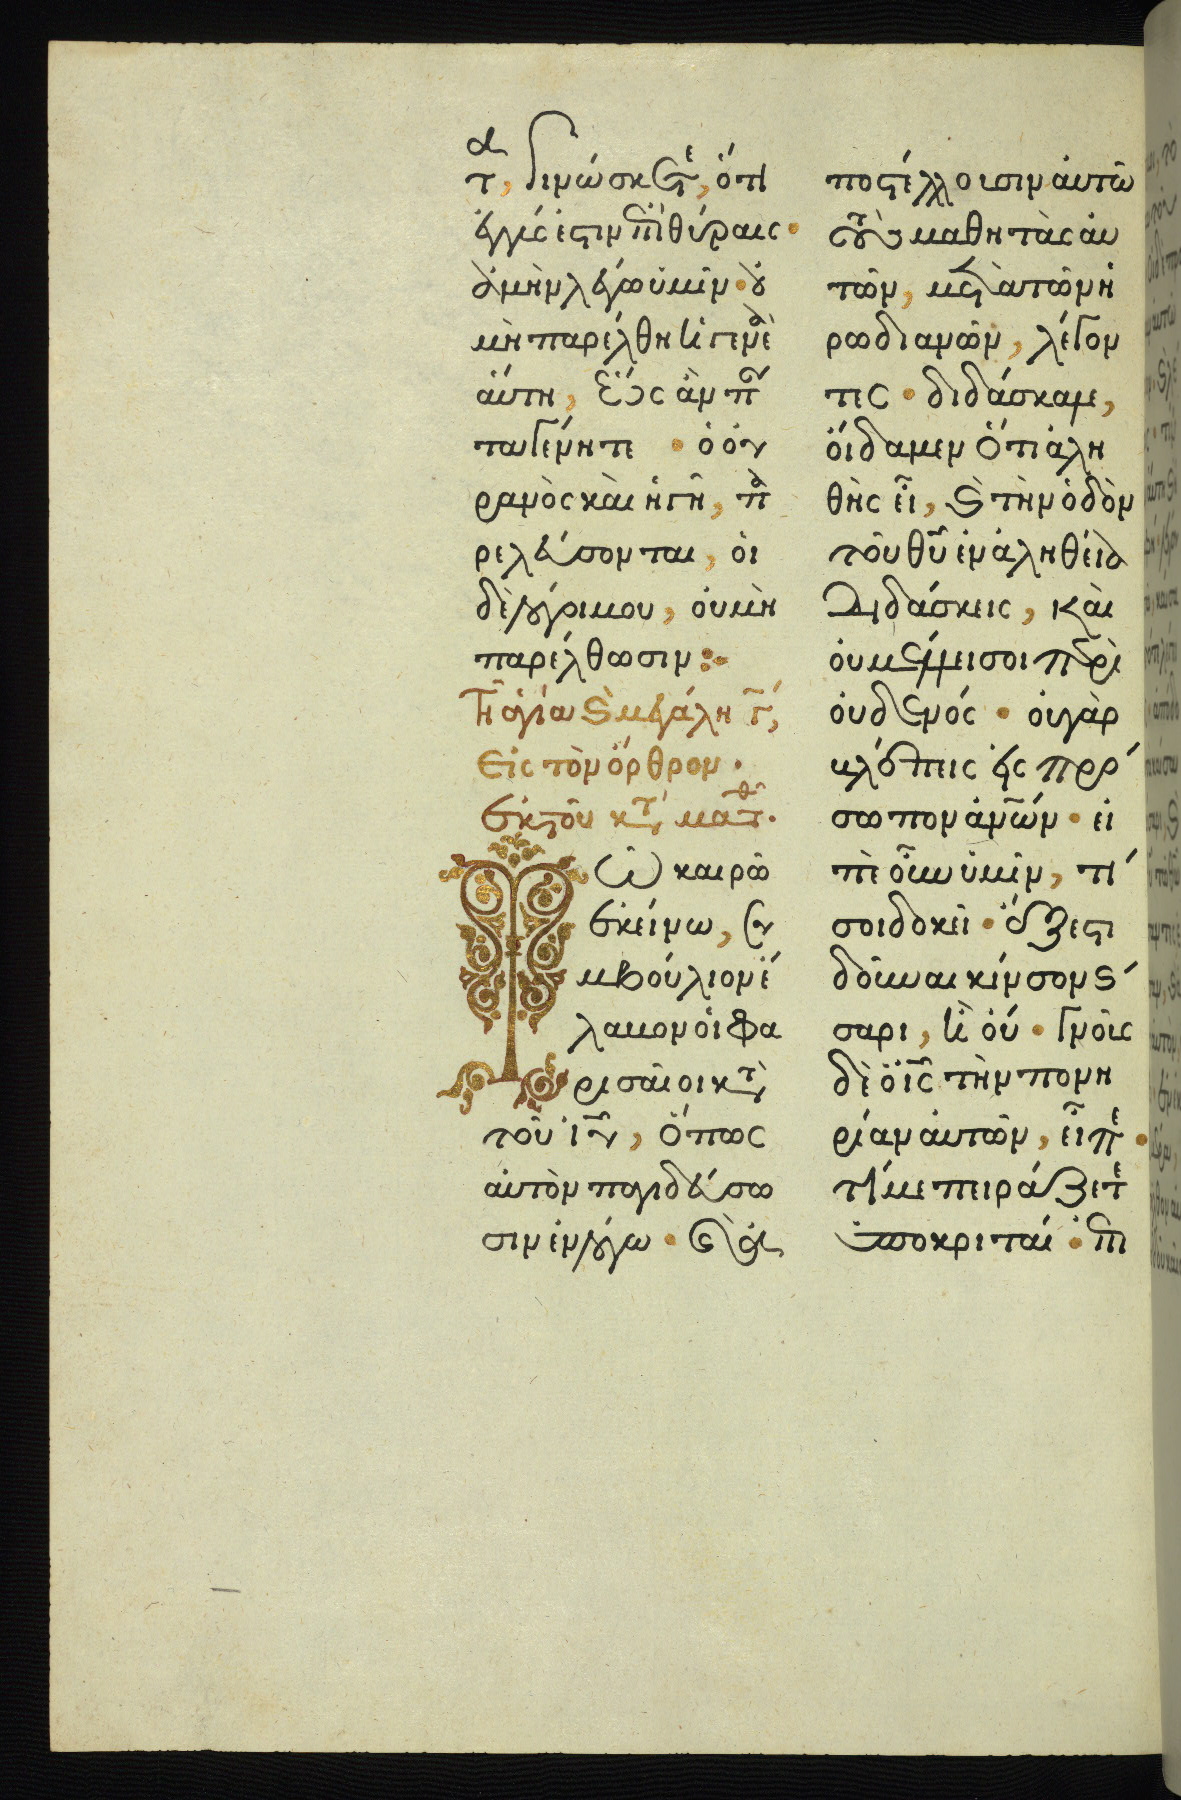 τα, γινώσκετε, ὅτι
ἐγγύς ἐστιν ἐπὶ θύραις·
ἀμὴν λέγω ὑμῖν· οὐ
μὴ παρέλθη ἡ γενεὰ
αὕτη, ἕως ἂν πάντα
ταῦτα γένηται· ὁ οὐ
ρανὸς καὶ ἡ γῆ, πα
ρελεύσονται, οἱ
δὲ λόγοι μου, οὐ μὴ
παρέλθωσιν:
Τῆ ἁγία καὶ μεγάλη γ΄,
Εἰς τὸν ὄρθρον.
Ἐκ τοῦ κατὰ Ματθ.
Τῶ καιρῶ
ἐκείνω, συ
μβούλιον ἔ
λαβον οἱ Φα
ρισαῖοι κατὰ
τοῦ ιυ, ὅπως
αὐτὸν παγιδεύσω
σιν ἐν λόγω· καὶ ἀ
ποστέλλουσιν αὐτῶ
τοὺς μαθητὰς αὐ
τῶν, μετὰ τῶν Ἡ
ρωδιανῶν, λέγον
τες· διδάσκαλε,
οἴδαμεν ὅτι ἀλη
θὴς εἶ, καὶ τὴν ὁδὸν
τοῦ θυ ἐν ἀληθεία
διδάσκεις, καὶ
οὐ μέλει σοι περὶ
οὐδενός· οὐ γὰρ
βλέπεις εἰς πρό
σωπον ἀνων· εἰ
πὲ οὖν ὑμῖν, τί
σοι δοκεῖ· ἔξεστι
δοῦναι κῆνσον Καί
σαρι, ἢ οὔ· γνοὺς
δὲ ὁ ις τὴν πονη
ρίαν αὐτῶν, εἶπε·
τί με πειράζετε
ὑποκριταί· ἐπι